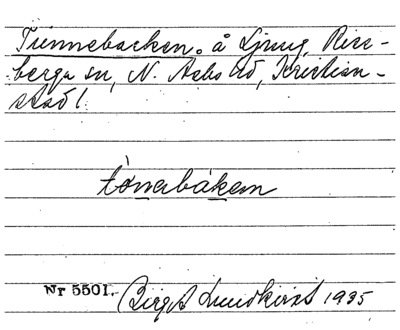 Tunnebacken. å Ljung, Riss-
berga sn, N. Åsbo hd, Kristian-
stad l.
tònabákan
Nr 5501. Birgit Lundkvist 1935